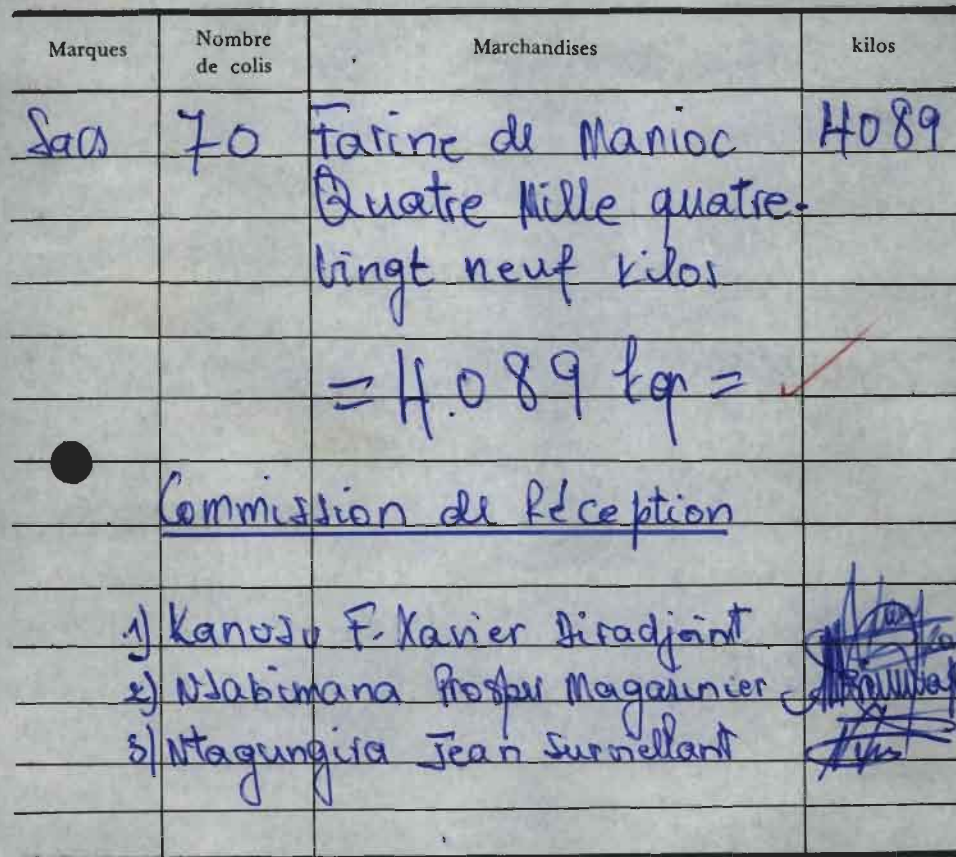 Marques Nombre de colis Marchandises kilos
Sacs 70 Farine de Manioc 4089
Quatre Mille quatre-
vingt neuf kilos
= 4.089 kgr =
Commission de Réception
1) F. Xavier Diradjoint
2) Ndabimana Prosper Magasinier
3) Ntagungira Jean Surveillant